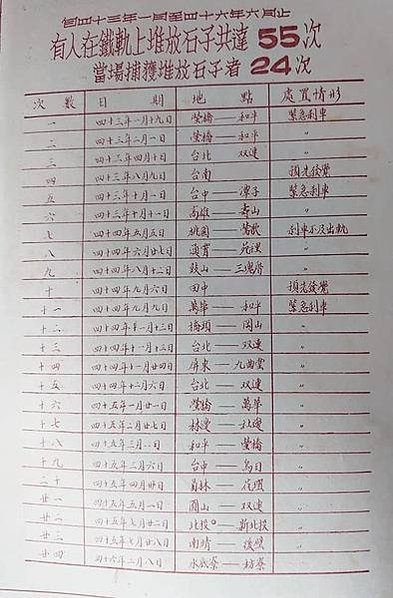 自四十三年一月至四十六年六月止
有人在鐵軌上堆放石子共達 55 次
當場捕獲堆放石子者 24 次
次數 日期 地點 處置情形
一 四十三年一月十九日 螢橋——和平 緊急剎車
二 四十三年二月一日 螢橋——和平 〃
三 四十三年四月十日 台北——双連 〃
四 四十三年八月九日 台南 預先發覺
五 四十三年十月一日 台中——潭子 緊急剎車
六 四十三年十月十一日 高雄——壽山 〃
七 四十四年五月五日 桃園——鶯歌 剎車不及出軌
八 四十四年六月廿七日 通霄——苑裡 〃
九 四十四年八月十二日 鼓山——三塊厝 〃
十 四十四年九月六日 田中 預先發覺
十一 四十四年九月九日 萬華——和平 緊急剎車
十二 四十四年十一月十三日 橋頭——岡山 〃
十三 四十四年十一月十三日 台北——双連 〃
十四 四十四年十一月廿四日 屏東——九曲堂 〃
十五 四十四年十二月六日 台北——双連 〃
十六 四十五年一月廿一日 螢橋——萬華 〃
十七 四十五年二月廿七日 林邊——北邊 〃
十八 四十五年三月八日 和平——螢橋 〃
十九 四十五年三月六日 台中——烏日 〃
二十 四十五年四月廿日 員林——花壇 〃
廿一 四十五年五月五日 圓山——双連 〃
廿二 四十五年七月廿三日 北投——新北投 〃
廿三 四十五年七月廿七日 南靖——後壁 〃
廿四 四十六年二月八日 水底寮——枋寮 〃